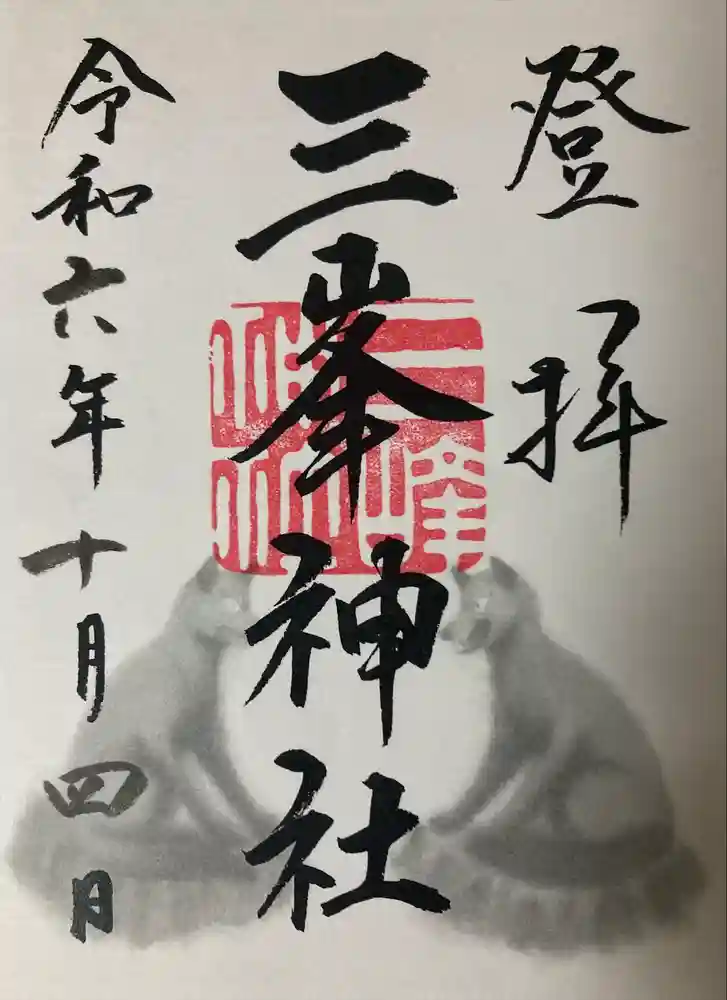 登拝
三峯神社
三峰神社
令和六年十月四日